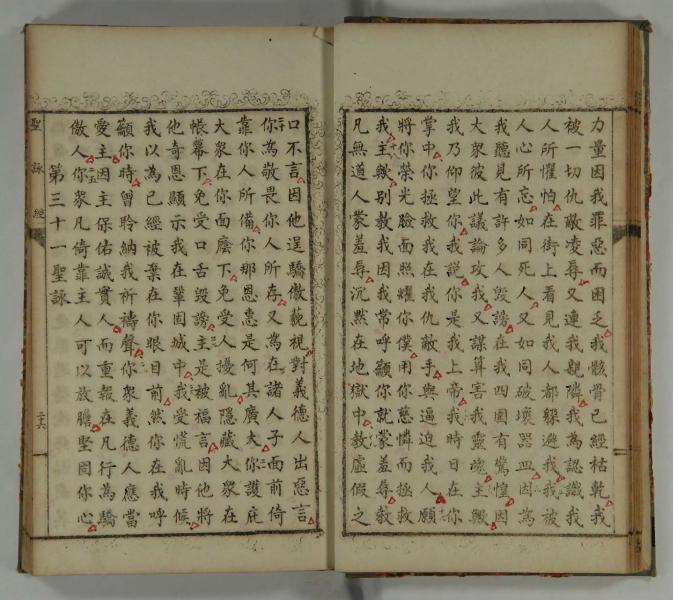 力量因我罪惡而困乏我骸骨已經枯乾我
被一切仇敵凌辱又連我親隣我為認識我
人所懼怕在街上看見我人都躲避我我被
人心所忘如同死人又如同破壞器皿因為
我聽見有許多人毀謗在我四圍有驚惶因
大衆彼此議論攻我又謀算害我靈魂主歟
我乃仰望你我說你是我上帝我時日在你
掌中你拯救我在我仇敵手與逼迫我人願
將你榮光臉面照耀你僕用你慈憐而拯救
我主歟別教我因我常呼籲你就蒙羞辱教
凡無道人蒙羞辱沉默在地獄中教虛假之
口不言因他逞驕傲藐視對義德人出惡言
你為敬畏你人所存又為在諸人子面前倚
靠你人所備你那恩惠是何其廣大你護庇
大衆在你面蔭下免受人擾亂隱藏大衆在
帳幕下免受口舌毀謗主是被福言因他將
他奇恩顯示我在鞏固城中我受慌亂時候
我以為已經被棄在你眼目前然你在我呼
籲你時曾聆納我祈禱聲你衆義德人應當
愛主因主保佑誠實人而重報在凡行為驕
傲人你衆凡倚靠主人可以放膽堅固你心
第三十一聖詠
聖詠經
二十六